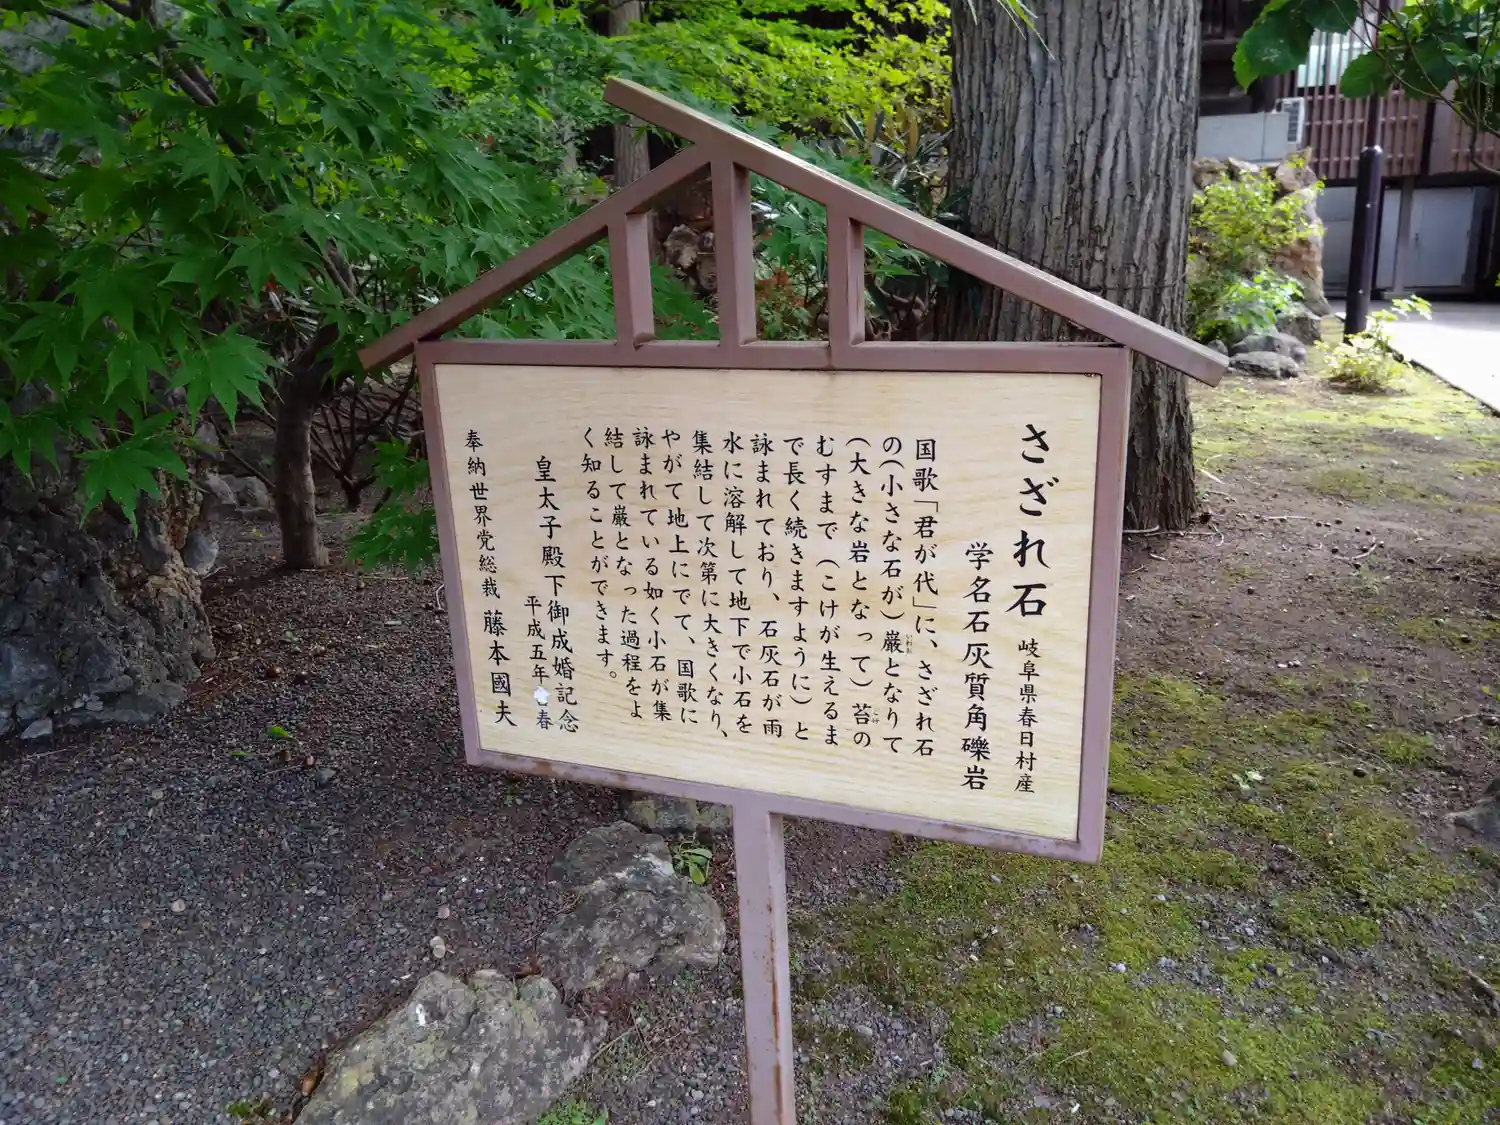 さざれ石 岐阜県春日村産
学名石灰質角礫岩
国歌「君が代」に、さざれ石
の(小さな石が)巌となりて
(大きな岩となって)苔の
むすまで(こけが生えるま
で長く続きますように)と
詠まれており、石灰石が雨
水に溶解して地下で小石を
集結して次第に大きくなり、
やがて地上にでて、国歌に
詠まれている如く小石が集
結して巌となった過程をよ
く知ることができます。
皇太子殿下御成婚記念
平成五年 春
奉納世界党総裁 藤本國夫